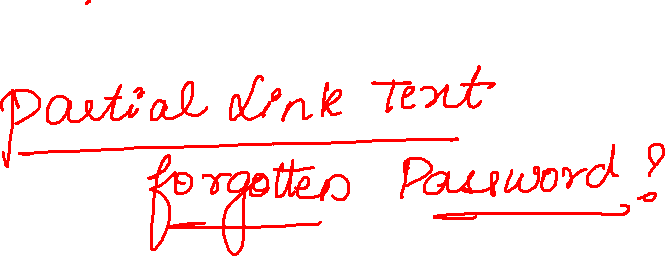 Partial Link Text
forgotten Password?